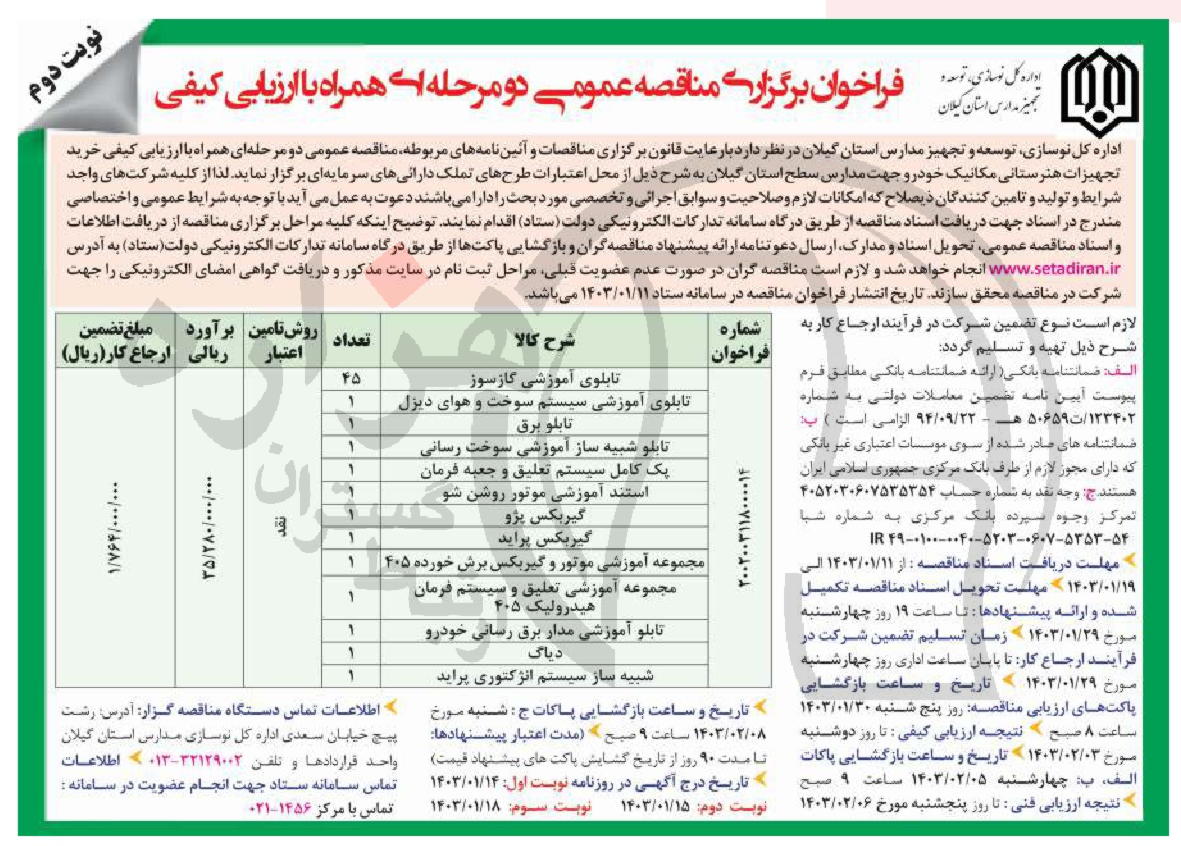 نوبت دوم
اداره کل نوسازی، توسعه و
تجهیز مدارس استان گیلان
فراخوان برگزاری مناقصه عمومی دو مرحله ای همراه با ارزیابی کیفی
اداره کل نوسازی، توسعه و تجهیز مدارس استان گیلان در نظر دارد با رعایت قانون برگزاری مناقصات و آئین‌نامه‌های مربوطه، مناقصه عمومی دو مرحله‌ای همراه با ارزیابی کیفی خرید
تجهیزات هنرستانی مکانیک خودرو جهت مدارس سطح استان گیلان به شرح ذیل از محل اعتبارات طرح‌های تملک دارائی‌های سرمایه‌ای برگزار نماید. لذا از کلیه شرکت‌های واجد
شرایط و تولید و تامین کنندگان ذیصلاح که امکانات لازم و صلاحیت و سوابق اجرائی و تخصصی مورد بحث را دارا می‌باشند دعوت به عمل می آید با توجه به شرایط عمومی و اختصاصی
مندرج در اسناد جهت دریافت اسناد مناقصه از طریق درگاه سامانه تدارکات الکترونیکی دولت (ستاد) اقدام نمایند. توضیح اینکه کلیه مراحل برگزاری مناقصه از دریافت اطلاعات
و اسناد مناقصه عمومی، تحویل اسناد و مدارک، ارسال دعوتنامه ارائه پیشنهاد مناقصه‌گران و بازگشایی پاکت‌ها از طریق درگاه سامانه تدارکات الکترونیکی دولت(ستاد) به آدرس
www.setadiran.ir انجام خواهد شد و لازم است مناقصه گران در صورت عدم عضویت قبلی، مراحل ثبت نام در سایت مذکور و دریافت گواهی امضای الکترونیکی را جهت
شرکت در مناقصه محقق سازند. تاریخ انتشار فراخوان مناقصه در سامانه ستاد ۱۴۰۳/۰۱/۱۱ می‌باشد.
لازم است نوع تضمین شرکت در فرآیند ارجاع کار به
شرح ذیل تهیه و تسلیم گردد:
الف: ضمانتنامه بانکی( ارائه ضمانتنامه بانکی مطابق فرم
پیوست آیین نامه تضمین معاملات دولتی به شماره
۱۲۳۴۰۲/ت۵۰۶۵۹ هـ ــ ۹۴/۰۹/۲۲ الزامی است ) ب:
ضمانتنامه های صادر شده از سوی موسسات اعتباری غیر بانکی
که دارای مجوز لازم از طرف بانک مرکزی جمهوری اسلامی ایران
هستند. ج: وجه نقد به شماره حساب ۴۰۵۲۰۳۰۶۰۷۵۳۵۳۵۴
تمرکز وجوه سپرده بانک مرکزی به شماره شبا
IR ۴۹-۰۱۰۰-۰۰۴۰-۵۲۰۳-۰۶۰۷-۵۳۵۳-۵۴
مهلت دریافت اسناد مناقصه : از ۱۴۰۳/۰۱/۱۱ الی
۱۴۰۳/۰۱/۱۹ مهلت تحویل اسناد مناقصه تکمیل
شده و ارائه پیشنهادها : تا ساعت ۱۹ روز چهارشنبه
مورخ ۱۴۰۳/۰۱/۲۹ زمان تسلیم تضمین شرکت در
فرآیند ارجاع کار: تا پایان ساعت اداری روز چهارشنبه
مورخ ۱۴۰۳/۰۱/۲۹ تاریخ و ساعت بازگشایی
پاکت‌های ارزیابی مناقصه: روز پنج شنبه ۱۴۰۳/۰۱/۳۰
ساعت ۸ صبح نتیجه ارزیابی کیفی : تا روز دوشنبه
مورخ ۱۴۰۳/۰۲/۰۳ تاریخ و ساعت بازگشایی پاکات
الف، ب: چهارشنبه ۱۴۰۳/۰۲/۰۵ ساعت ۹ صبح
نتیجه ارزیابی فنی : تا روز پنجشنبه مورخ ۱۴۰۳/۰۲/۰۶
شماره فراخوان | شرح کالا | تعداد | روش تامین اعتبار | برآورد ریالی | مبلغ تضمین ارجاع کار (ریال)
۲۰۰۲۰۰۳۱۱۸۰۰۰۰۱۴ | نقد | ۳۵/۲۸۰/۰۰۰/۰۰۰ | ۱/۷۶۴/۰۰۰/۰۰۰
تابلوی آموزشی گازسوز ۴۵
تابلوی آموزشی سیستم سوخت و هوای دیزل ۱
تابلو برق ۱
تابلو شبیه ساز آموزشی سوخت رسانی ۱
پک کامل سیستم تعلیق و جعبه فرمان ۱
استند آموزشی موتور روشن شو ۱
گیربکس پژو ۱
گیربکس پراید ۱
مجموعه آموزشی موتور و گیربکس برش خورده ۴۰۵ ۱
مجموعه آموزشی تعلیق و سیستم فرمان
هیدرولیک ۴۰۵ ۱
تابلو آموزشی مدار برق رسانی خودرو ۱
دیاگ ۱
شبیه ساز سیستم انژکتوری پراید ۱
تاریخ و ساعت بازگشایی پاکات ج : شنبه مورخ
۱۴۰۳/۰۲/۰۸ ساعت ۹ صبح (مدت اعتبار پیشنهادها:
تا مدت ۹۰ روز از تاریخ گشایش پاکت های پیشنهاد قیمت)
تاریخ درج آگهی در روزنامه نوبت اول: ۱۴۰۳/۰۱/۱۴
نوبت دوم: ۱۴۰۳/۰۱/۱۵ نوبت سوم: ۱۴۰۳/۰۱/۱۸
اطلاعات تماس دستگاه مناقصه گزار: آدرس: رشت
پیچ خیابان سعدی اداره کل نوسازی مدارس استان گیلان
واحد قراردادها و تلفن ۳۲۱۲۹۰۰۲-۰۱۳ اطلاعات
تماس سامانه ستاد جهت انجام عضویت در سامانه :
تماس با مرکز ۱۴۵۶-۰۲۱
هزاره
گستران